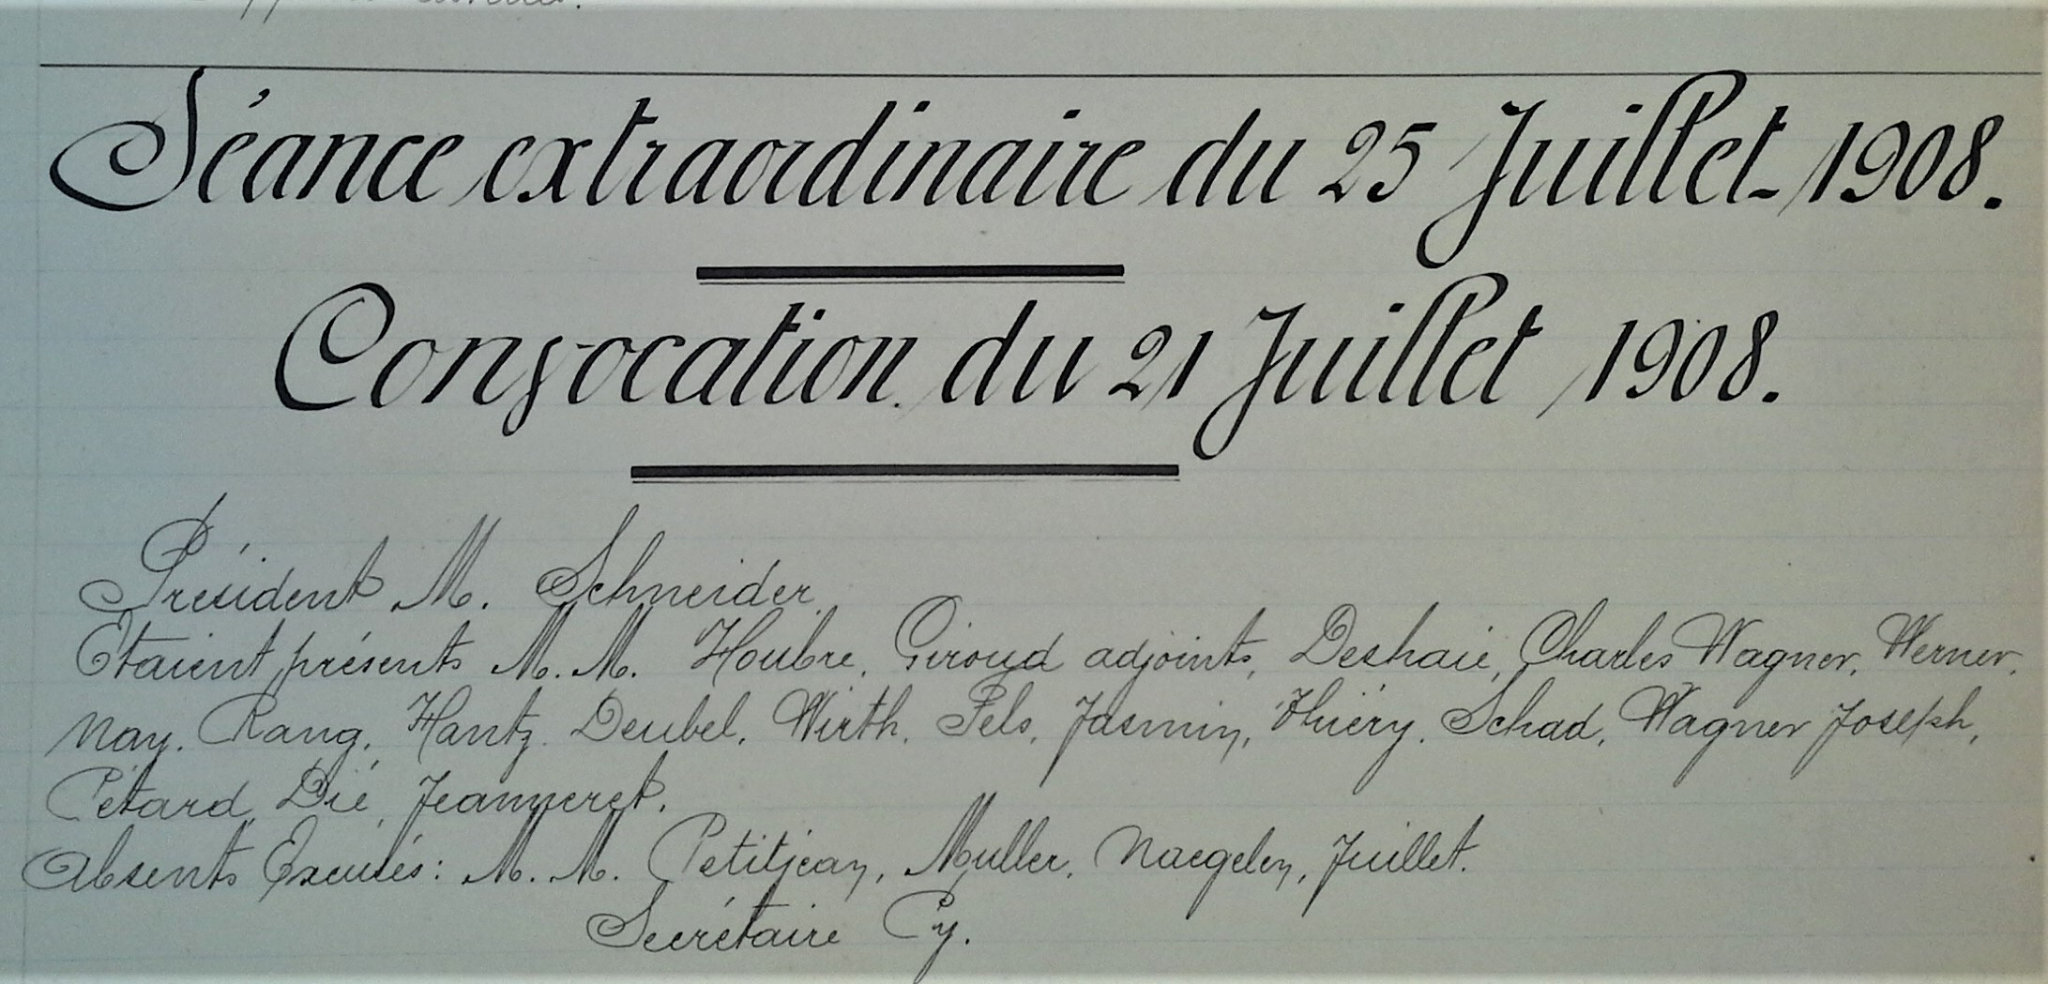 Séance extraordinaire du 25 Juillet 1908.
Convocation du 21 Juillet 1908.
Président M. Schneider.
Etaient présents M. M. Houbre, Giroud adjoints, Deshaie, Charles Wagner, Werner,
Nay, Rang, Hantz, Deubel, Wirth, Fels, Jasmin, Thiéry, Schad, Wagner Joseph,
Pétard, Dié, Jeanneret.
Absents Excusés: M. M. Petitjean, Muller, Naegelen, Juillet.
Secrétaire Cy.